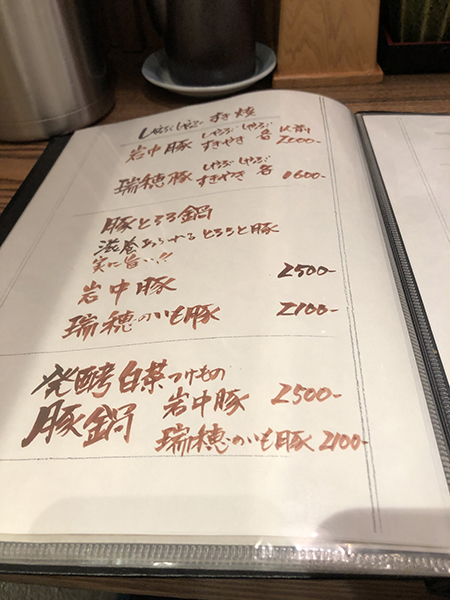 しゃぶしゃぶ すき焼
岩中豚 しゃぶしゃぶ すきやき 各 2000-
瑞穂豚 しゃぶしゃぶ すきやき 各 1600-
豚とろろ鍋
滋養あふれるとろろと豚
実に旨い!!
岩中豚 2500-
瑞穂のいも豚 2100-
発酵白菜つけもの
豚鍋 岩中豚 2500-
瑞穂のいも豚 2100-